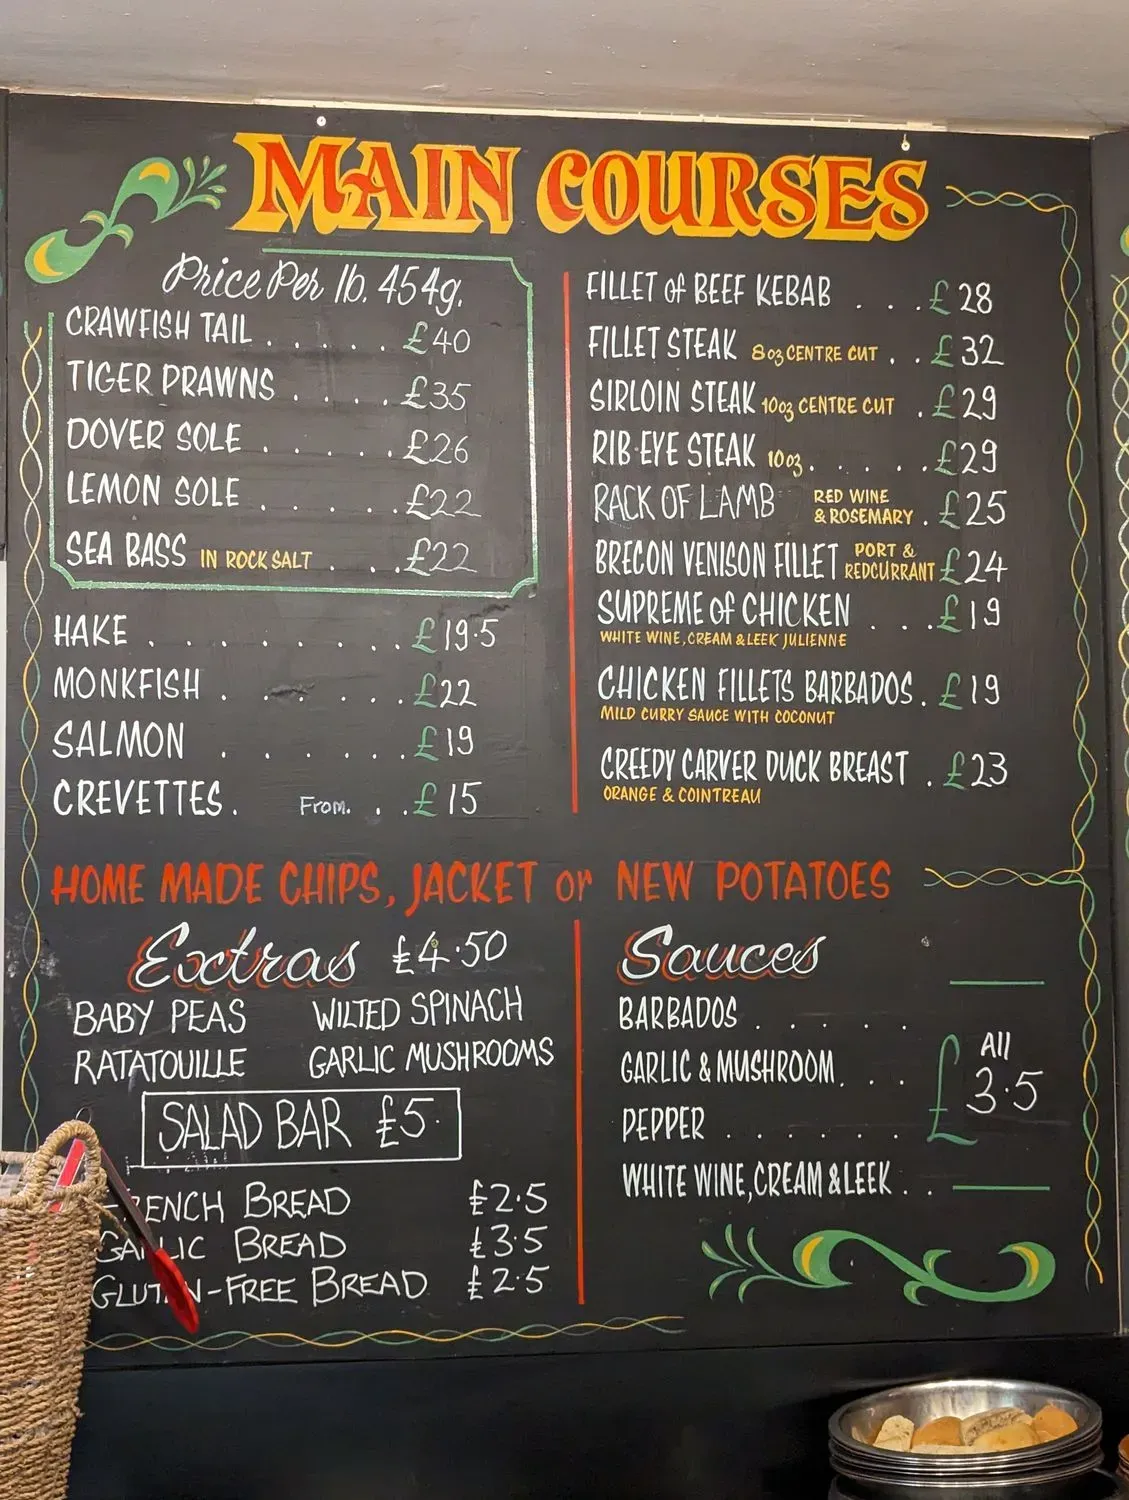 MAIN COURSES
Price Per lb. 454g.
CRAWFISH TAIL . . . . . £40
TIGER PRAWNS . . . . £35
DOVER SOLE . . . . . £26
LEMON SOLE . . . . . £22
SEA BASS IN ROCK SALT . . . £22
HAKE . . . . . . . . £19·5
MONKFISH . . . . . £22
SALMON . . . . . £19
CREVETTES. From. . . £15
FILLET of BEEF KEBAB . . . £28
FILLET STEAK 8oz CENTRE CUT . . £32
SIRLOIN STEAK 10oz CENTRE CUT . £29
RIB·EYE STEAK 10oz . . . . . £29
RACK OF LAMB RED WINE
& ROSEMARY . £25
BRECON VENISON FILLET PORT &
REDCURRANT £24
SUPREME of CHICKEN . . . £19
WHITE WINE, CREAM & LEEK JULIENNE
CHICKEN FILLETS BARBADOS . £19
MILD CURRY SAUCE WITH COCONUT
CREEDY CARVER DUCK BREAST . £23
ORANGE & COINTREAU
HOME MADE CHIPS, JACKET or NEW POTATOES
Extras £4·50
BABY PEAS WILTED SPINACH
RATATOUILLE GARLIC MUSHROOMS
SALAD BAR £5·
FRENCH BREAD £2·5
GARLIC BREAD £3·5
GLUTEN-FREE BREAD £2·5
Sauces
BARBADOS . . . . .
GARLIC & MUSHROOM. . .
PEPPER . . . . . .
WHITE WINE, CREAM & LEEK . .
All
£3·5